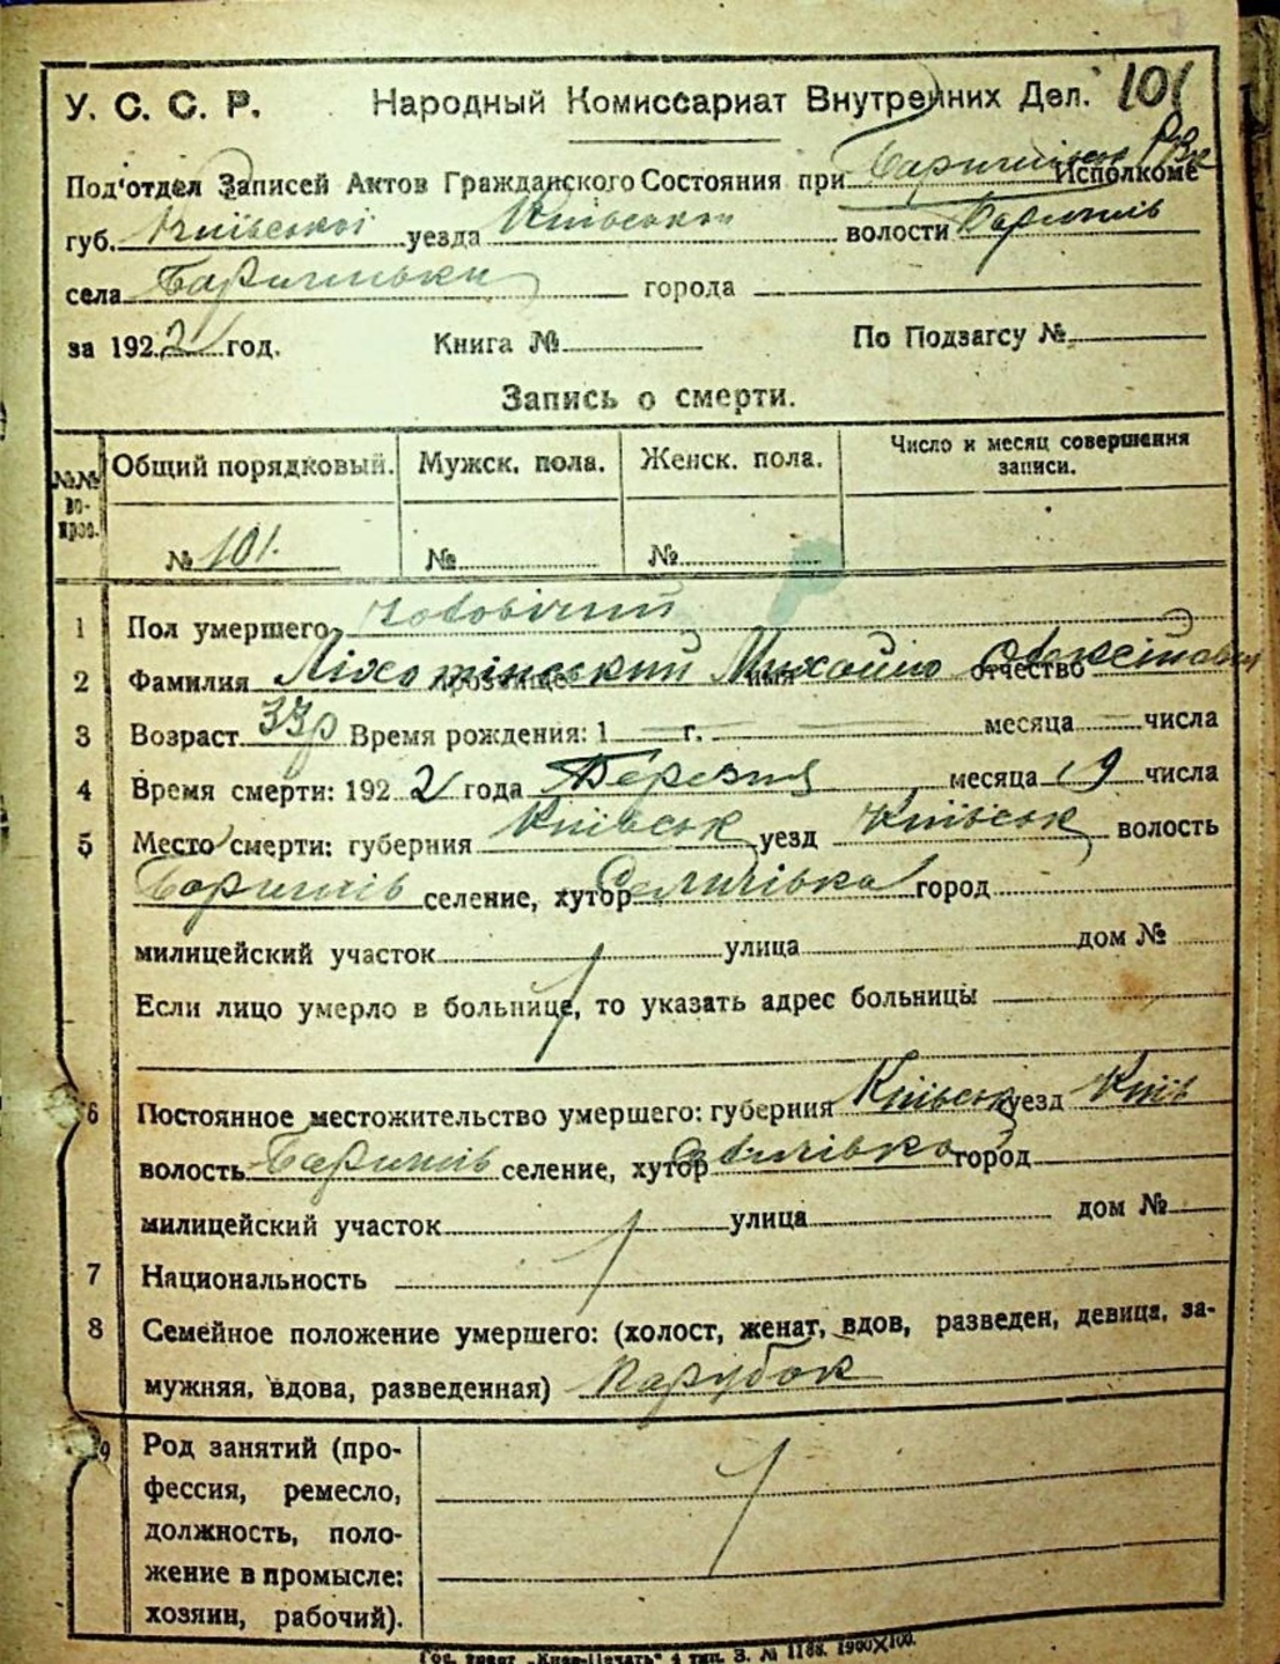 У. С. С. Р. Народный Комиссариат Внутренних Дел. 101
Под'отдел Записей Актов Гражданского Состояния при Исполкоме
губ. Київської уезда Київськой волости Баришів
села Баришівки города
за 1922 год. Книга № По Подзагсу №
Запись о смерти.
№№ вопрос. Общий порядковый. Мужск. пола. Женск. пола. Число и месяц совершения записи.
№ 101. № №
1 Пол умершего чоловічий
2 Фамилия прозвище Михайло имя отчество
3 Возраст 33р Время рождения: 1 г. месяца числа
4 Время смерти: 1922 года Березня месяца 19 числа
5 Место смерти: губерния Київськ уезд Київськ волость
Баришів селение, хутор город
милицейский участок улица дом №
Если лицо умерло в больнице, то указать адрес больницы
6 Постоянное местожительство умершего: губерния Київськ уезд Київ
волость Баришів селение, хутор город
милицейский участок улица дом №
7 Национальность
8 Семейное положение умершего: (холост, женат, вдов, разведен, девица, за-
мужняя, вдова, разведенная) Парубок
9 Род занятий (про-
фессия, ремесло,
должность, поло-
жение в промысле:
хозяин, рабочий).
Гос. трест „Киев-Печать“ 4 тип. З. № 1188. 1900X100.